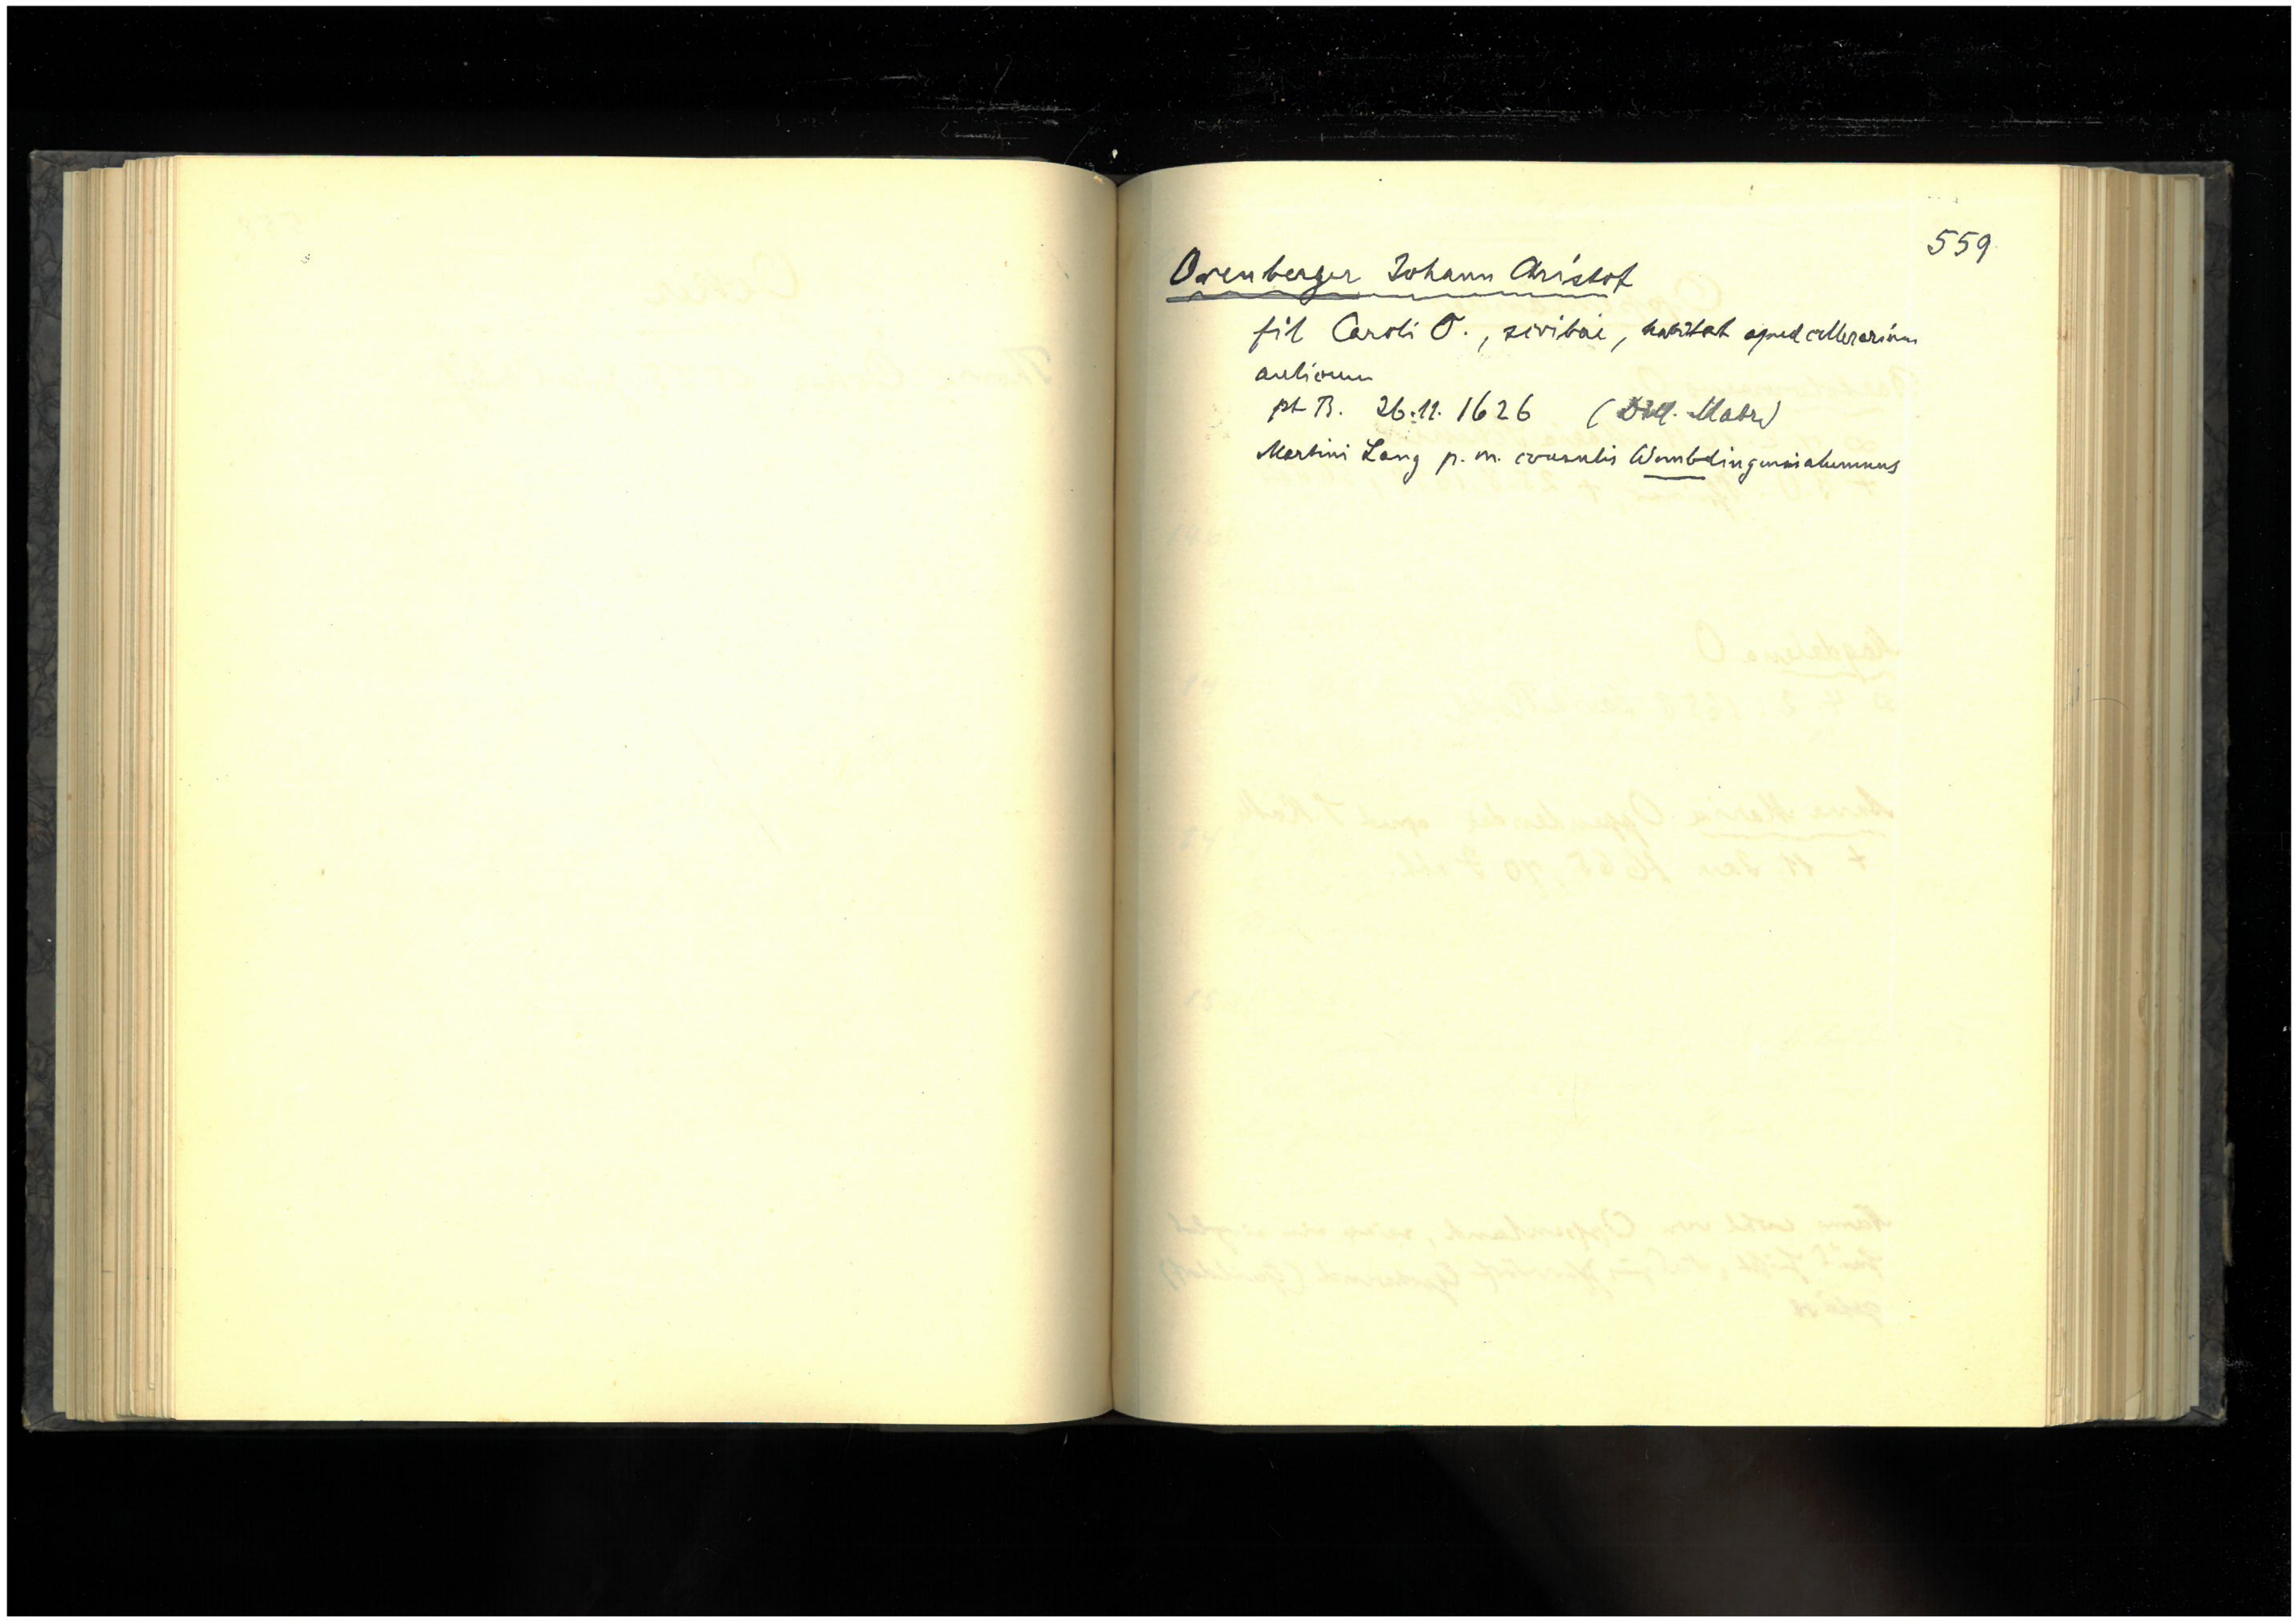 559
Orenberger Johann Christof
fil Caroli O., scribae, habitat apud cellerarium
aulicum
pt B. 26.11.1626
Martini Lang p. m. consulis Wembdingensis alumnus